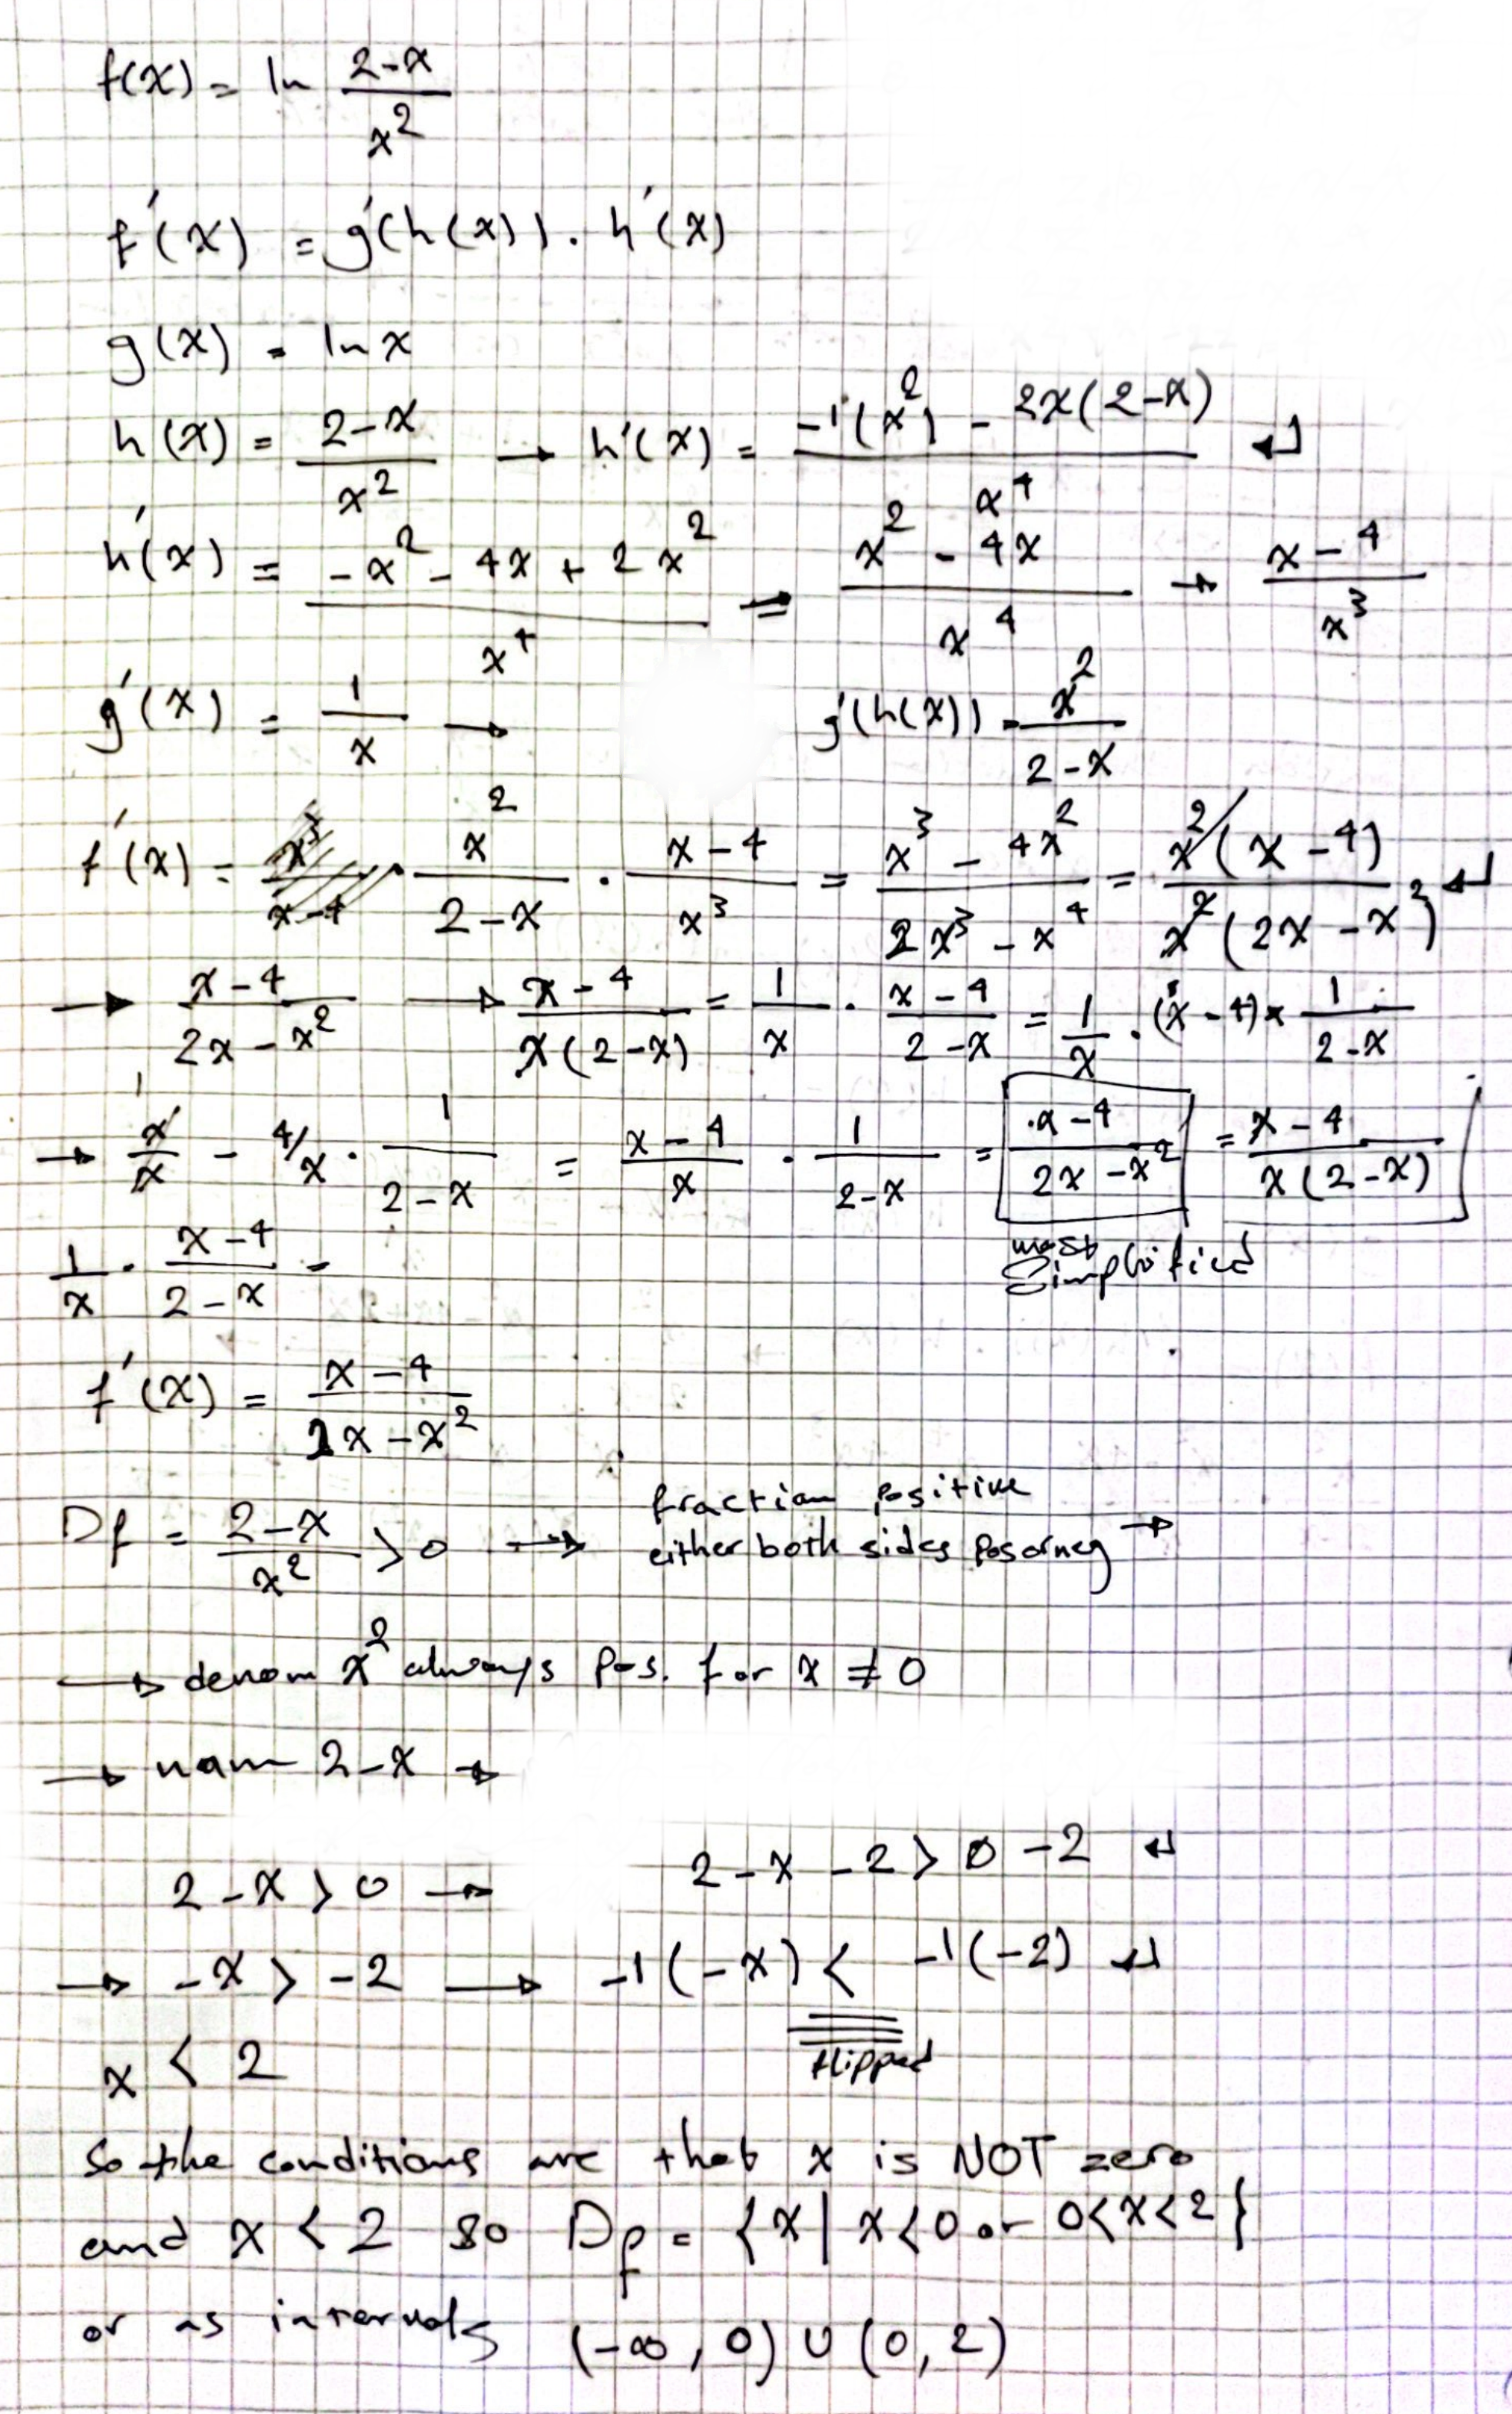 f(x) = ln (2-x)/x²
f'(x) = g'(h(x)) . h'(x)
g(x) = ln x
h(x) = (2-x)/x² → h'(x) = (-1(x²) - 2x(2-x))/x⁴ ↵
h'(x) = (-x² - 4x + 2x²)/x⁴ ⇒ (x² - 4x)/x⁴ → (x-4)/x³
g'(x) = 1/x → g'(h(x)) = x²/(2-x)
f'(x) = x²/(2-x) . (x-4)/x³ = (x³ - 4x²)/(2x³ - x⁴) = x²(x-4)/(x²(2x-x²)) ↵
→ (x-4)/(2x-x²) → (x-4)/(x(2-x)) = 1/x . (x-4)/(2-x) = 1/x . (x-4) × 1/(2-x)
→ x/x - 4/x . 1/(2-x) = (x-4)/x . 1/(2-x) = (x-4)/(2x-x²) = (x-4)/(x(2-x))
most
simplified
1/x . (x-4)/(2-x) =
f'(x) = (x-4)/(2x-x²)
Df = (2-x)/x² > 0 → fraction positive
either both sides pos or neg →
→ denom x² always pos. for x ≠ 0
→ num 2-x →
2-x > 0 → 2-x-2 > 0-2 ↵
→ -x > -2 → -1(-x) < -1(-2) ↵
flipped
x < 2
So the conditions are that x is NOT zero
and x < 2 so Df = {x | x<0 or 0<x<2}
or as intervals (-∞, 0) ∪ (0, 2)